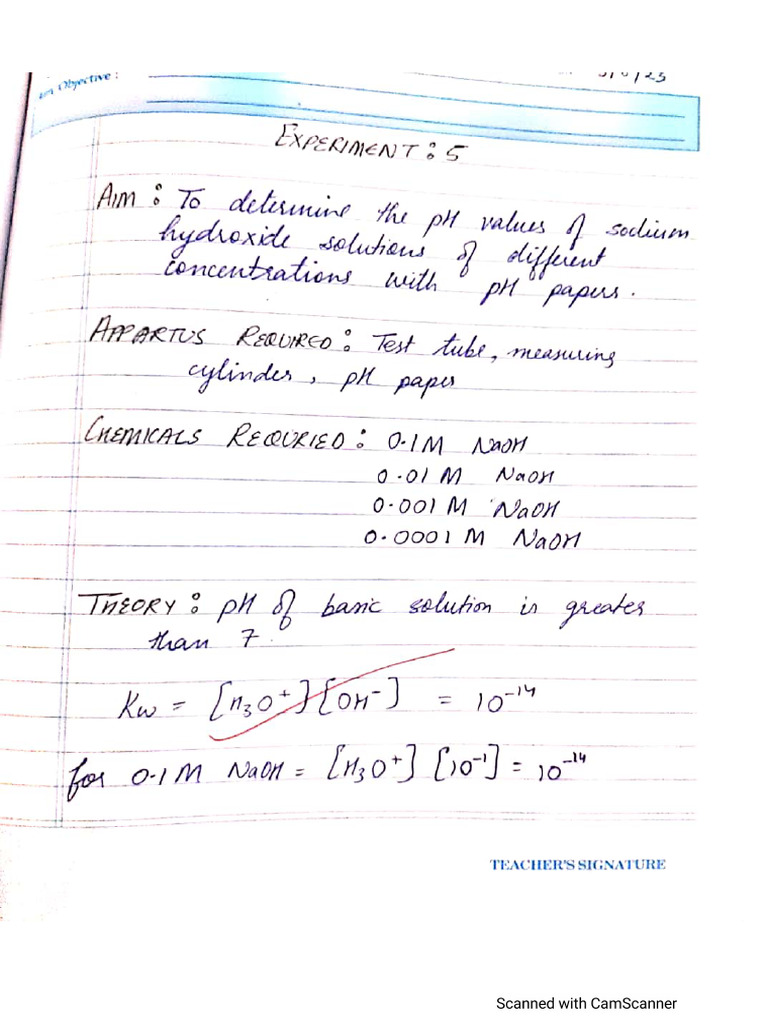 Objective :
EXPERIMENT : 5
AIM : To determine the pH values of sodium
hydroxide solutions of different
concentrations with pH papers.
APPARTUS REQUIRED : Test tube, measuring
cylinder, pH paper
CHEMICALS REQURIED : 0.1M NaOH
0.01 M NaOH
0.001 M NaOH
0.0001 M NaOH
THEORY : pH of basic solution is greater
than 7.
Kw = [H₃O⁺][OH⁻] = 10⁻¹⁴
for 0.1M NaOH = [H₃O⁺] [10⁻¹] = 10⁻¹⁴
TEACHER'S SIGNATURE
Scanned with CamScanner